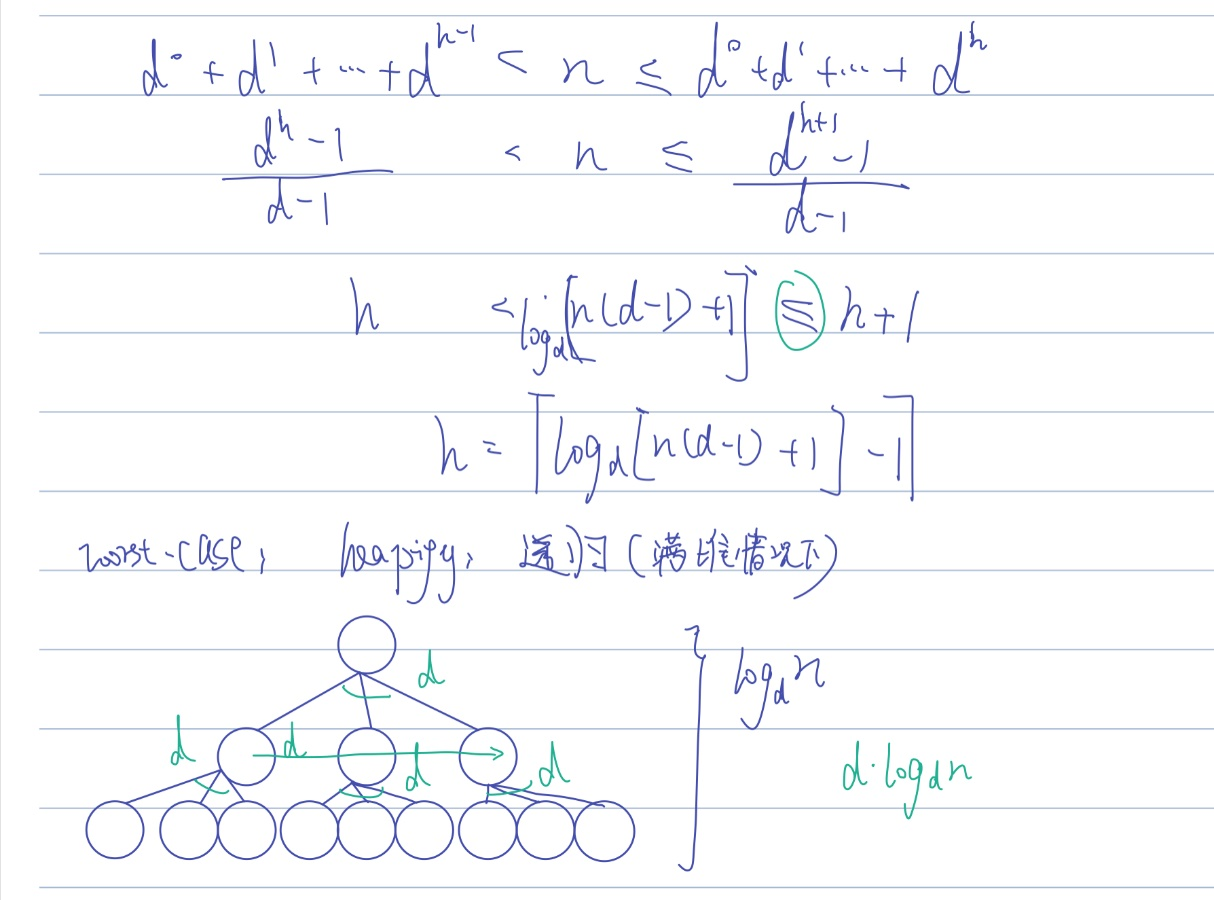 d⁰ + d¹ + ... + d^{h-1} < n ≤ d⁰ + d¹ + ... + d^h
\frac{d^h - 1}{d - 1} < n ≤ \frac{d^{h+1} - 1}{d - 1}
h < log_d [n(d-1) + 1] ≤ h + 1
h = ⌈log_d [n(d-1) + 1] - 1⌉
worst-case, heapify, 递归 (满堆情况下)
d
log_d n
d d d d
d · log_d n